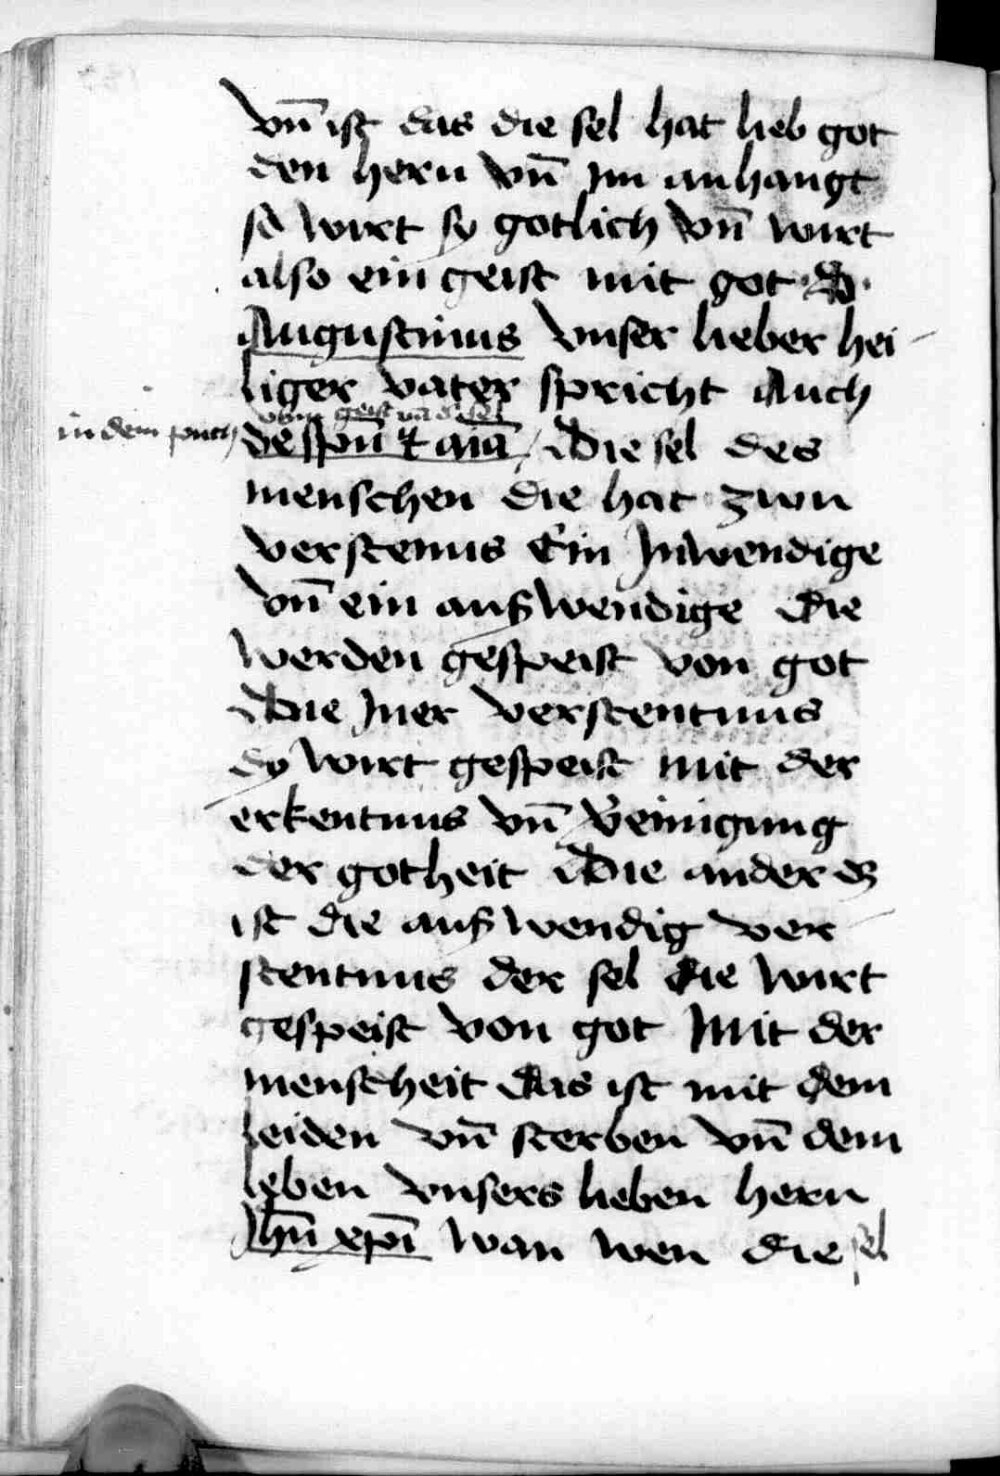 vn̄ ist das die sel hat lieb got
den hern vn̄ im anhangt
so wirt sy gotlich vn̄ wirt
also ein geist mit got S.
Augustinus vnser lieber hei-
liger vater spricht Auch
vom geist vn̄ d sel
in dem puch
de spū & aīa / Die sel des
menschen die hat zwu
verstenus Ein Inwendige
vn̄ ein außwendige die
werden gespeist von got
Die Iner verstentnus
dy wirt gespeist mit der
erkentnus vn̄ v̄einigung
der gotheit Die ander dz
ist die außwendig ver-
stentnus der sel die wirt
gespeist von got Mit der
menscheit das ist mit dem
leiden vn̄ sterben vn̄ dem
leben vnsers lieben hern
Jhū xpī wan wen die sel